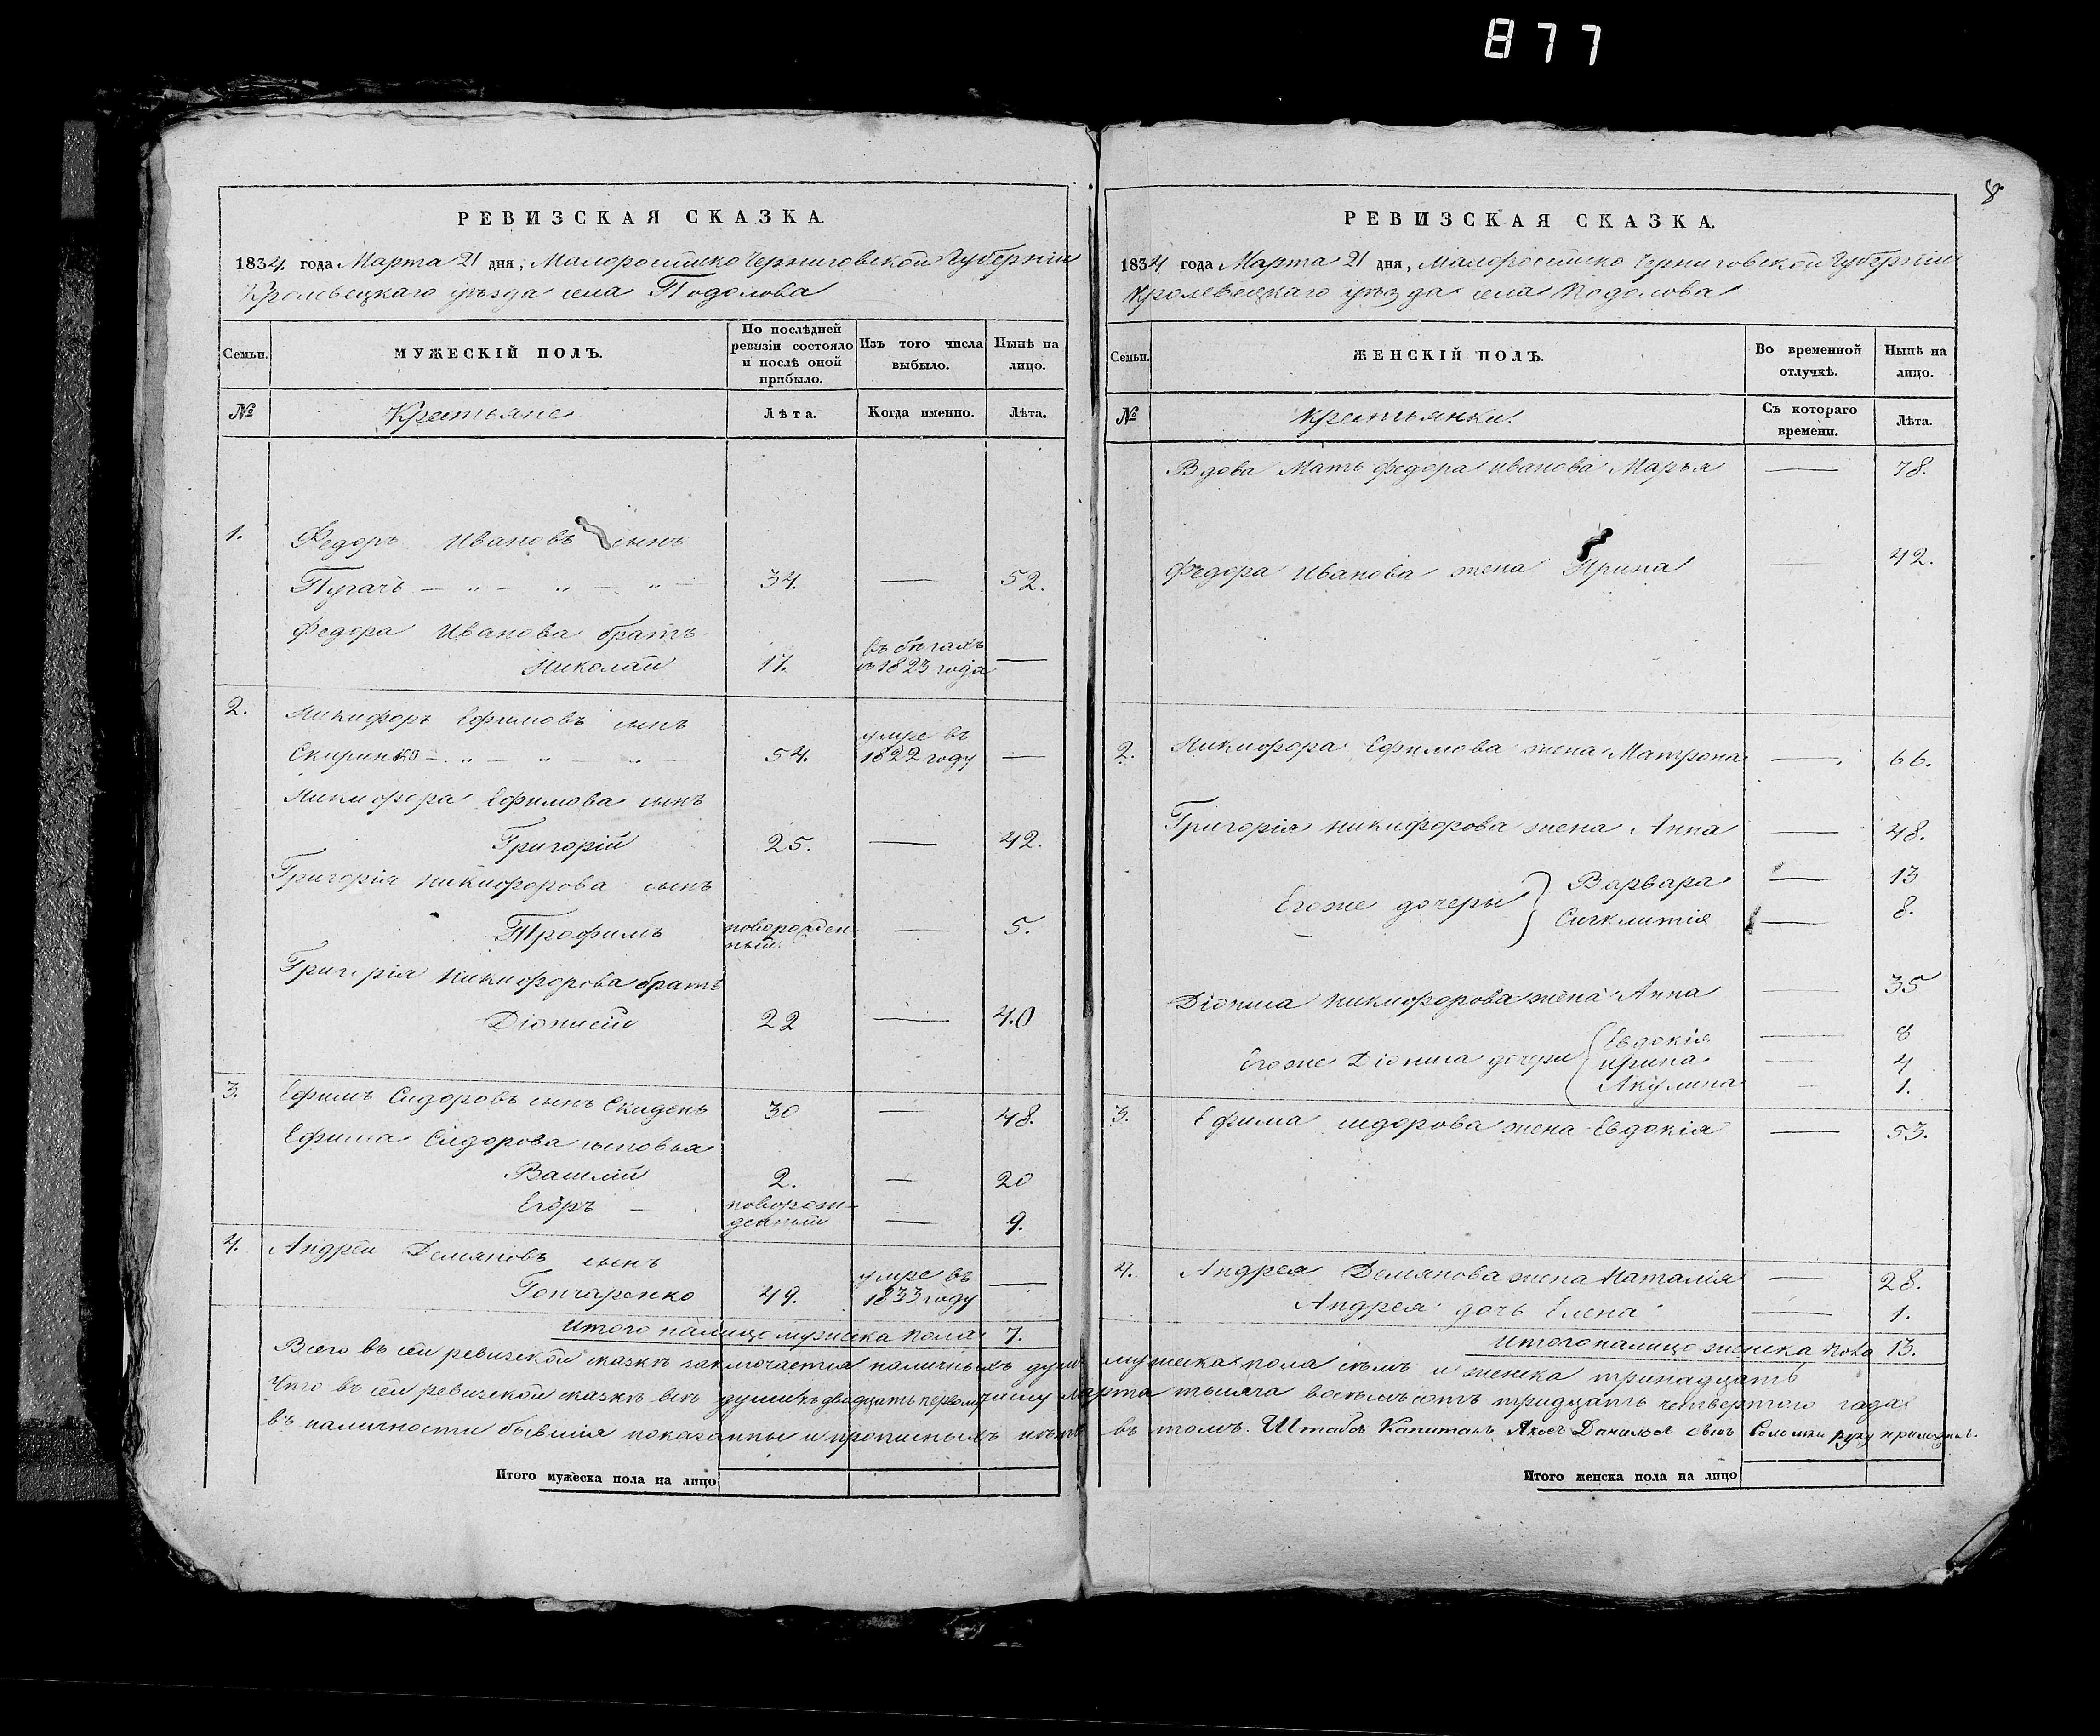 877
8
РЕВИЗСКАЯ СКАЗКА.
1834. года Марта 21 дня, Малоросийско Черниговской Губернии
Кролевецкаго уѣзда села Подолова
Семьи.
МУЖЕСКІЙ ПОЛЪ.
По послѣдней ревизіи состояло и послѣ оной прибыло.
Изъ того числа выбыло.
Нынѣ на лицо.
№
Крестьяне
Лѣта.
Когда именно.
Лѣта.
1. Федоръ Ивановъ сынъ
Пугачъ — „ — „ — „ — 34. — 52.
Федора Иванова братъ
Николай 17. въ бѣгахъ съ 1823 года —
2. Никифоръ Ефимовъ сынъ
Скиринко — „ — „ — „ — 54. умре въ 1822 году —
Никифора Ефимова сынъ
Григорій 25. — 42.
Григорія Никифорова сынъ
Трофимъ новорожденный — 5.
Григорія Никифорова братъ
Діонисій 22 — 40
3. Ефимъ Сидоровъ сынъ Скиденъ 30 — 48.
Ефима Сидорова сыновья
Василій 2. — 20
Егоръ — новорожденный — 9.
4. Андрей Демяновъ сынъ
Гончаренко 49. умре въ 1833 году —
Итого налицо мужеска пола 7.
РЕВИЗСКАЯ СКАЗКА.
1834 года Марта 21 дня, Малоросийско Черниговской Губернии
Кролевецкаго уѣзда села Подолова
Семьи.
ЖЕНСКІЙ ПОЛЪ.
Во временной отлучкѣ.
Нынѣ на лицо.
№
Крестьянки.
Съ котораго времени.
Лѣта.
Вдова Мать Федора Иванова Марья — 78.
Федора Иванова жена Ирина — 42.
2. Никифора Ефимова жена Матрона — 66.
Григорія Никифорова жена Анна — 48.
Егоже дочери Варвара — 13
Сигклитія — 8.
Діониса Никифорова жена Анна — 35
Егоже Діониса дочери Евдокія — 8
Ирина — 4
Акулина — 1.
3. Ефима Сидорова жена Евдокія — 53.
4. Андрея Демянова жена Наталія — 28.
Андрея дочь Елена — 1.
Итого налицо женска пола 13.
Всего въ сей ревизской сказкѣ заключается наличныхъ душъ мужеска пола семь и женска тринадцать
Что въ сей ревизской сказкѣ всѣ души къ двадцать первому числу Марта тысяча восемьсотъ тридцать четвертого года
въ наличности бывшія показанны и прописныхъ нѣтъ въ томъ. Штабсъ Капитанъ Яковъ Данильевъ сынъ руку приложилъ.
Итого мужеска пола на лицо
Итого женска пола на лицо